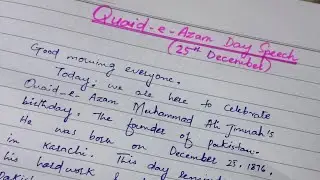 Quaid-e-Azam Day Speech
(25th December)
Good morning everyone.
Today, we are here to celebrate
Quaid-e-Azam Muhammad Ali Jinnah's
birthday. The founder of Pakistan.
He was born on December 25, 1876,
in Karachi. This day
his hardwork &